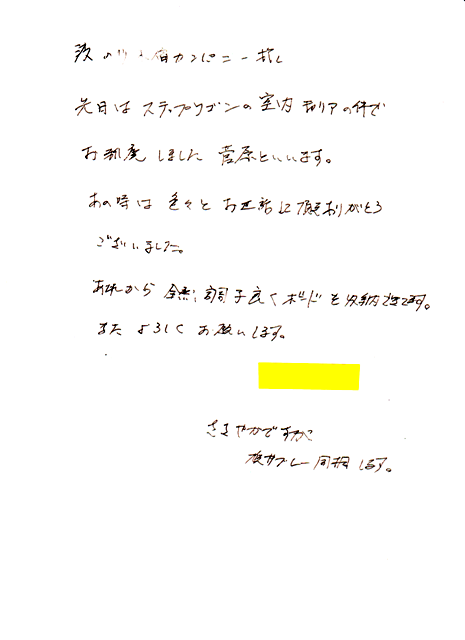 カンパニー 様
先日は ステップワゴンの 室内 キャリアの件で
お邪魔 しました 菅原といいます。
あの時は 色々と お世話に ありがとう
ございました。
あれから 調子良く ボードを 収納できてます。
また よろしく お願いします。
ささやかですが
鳩サブレー 同梱 します。